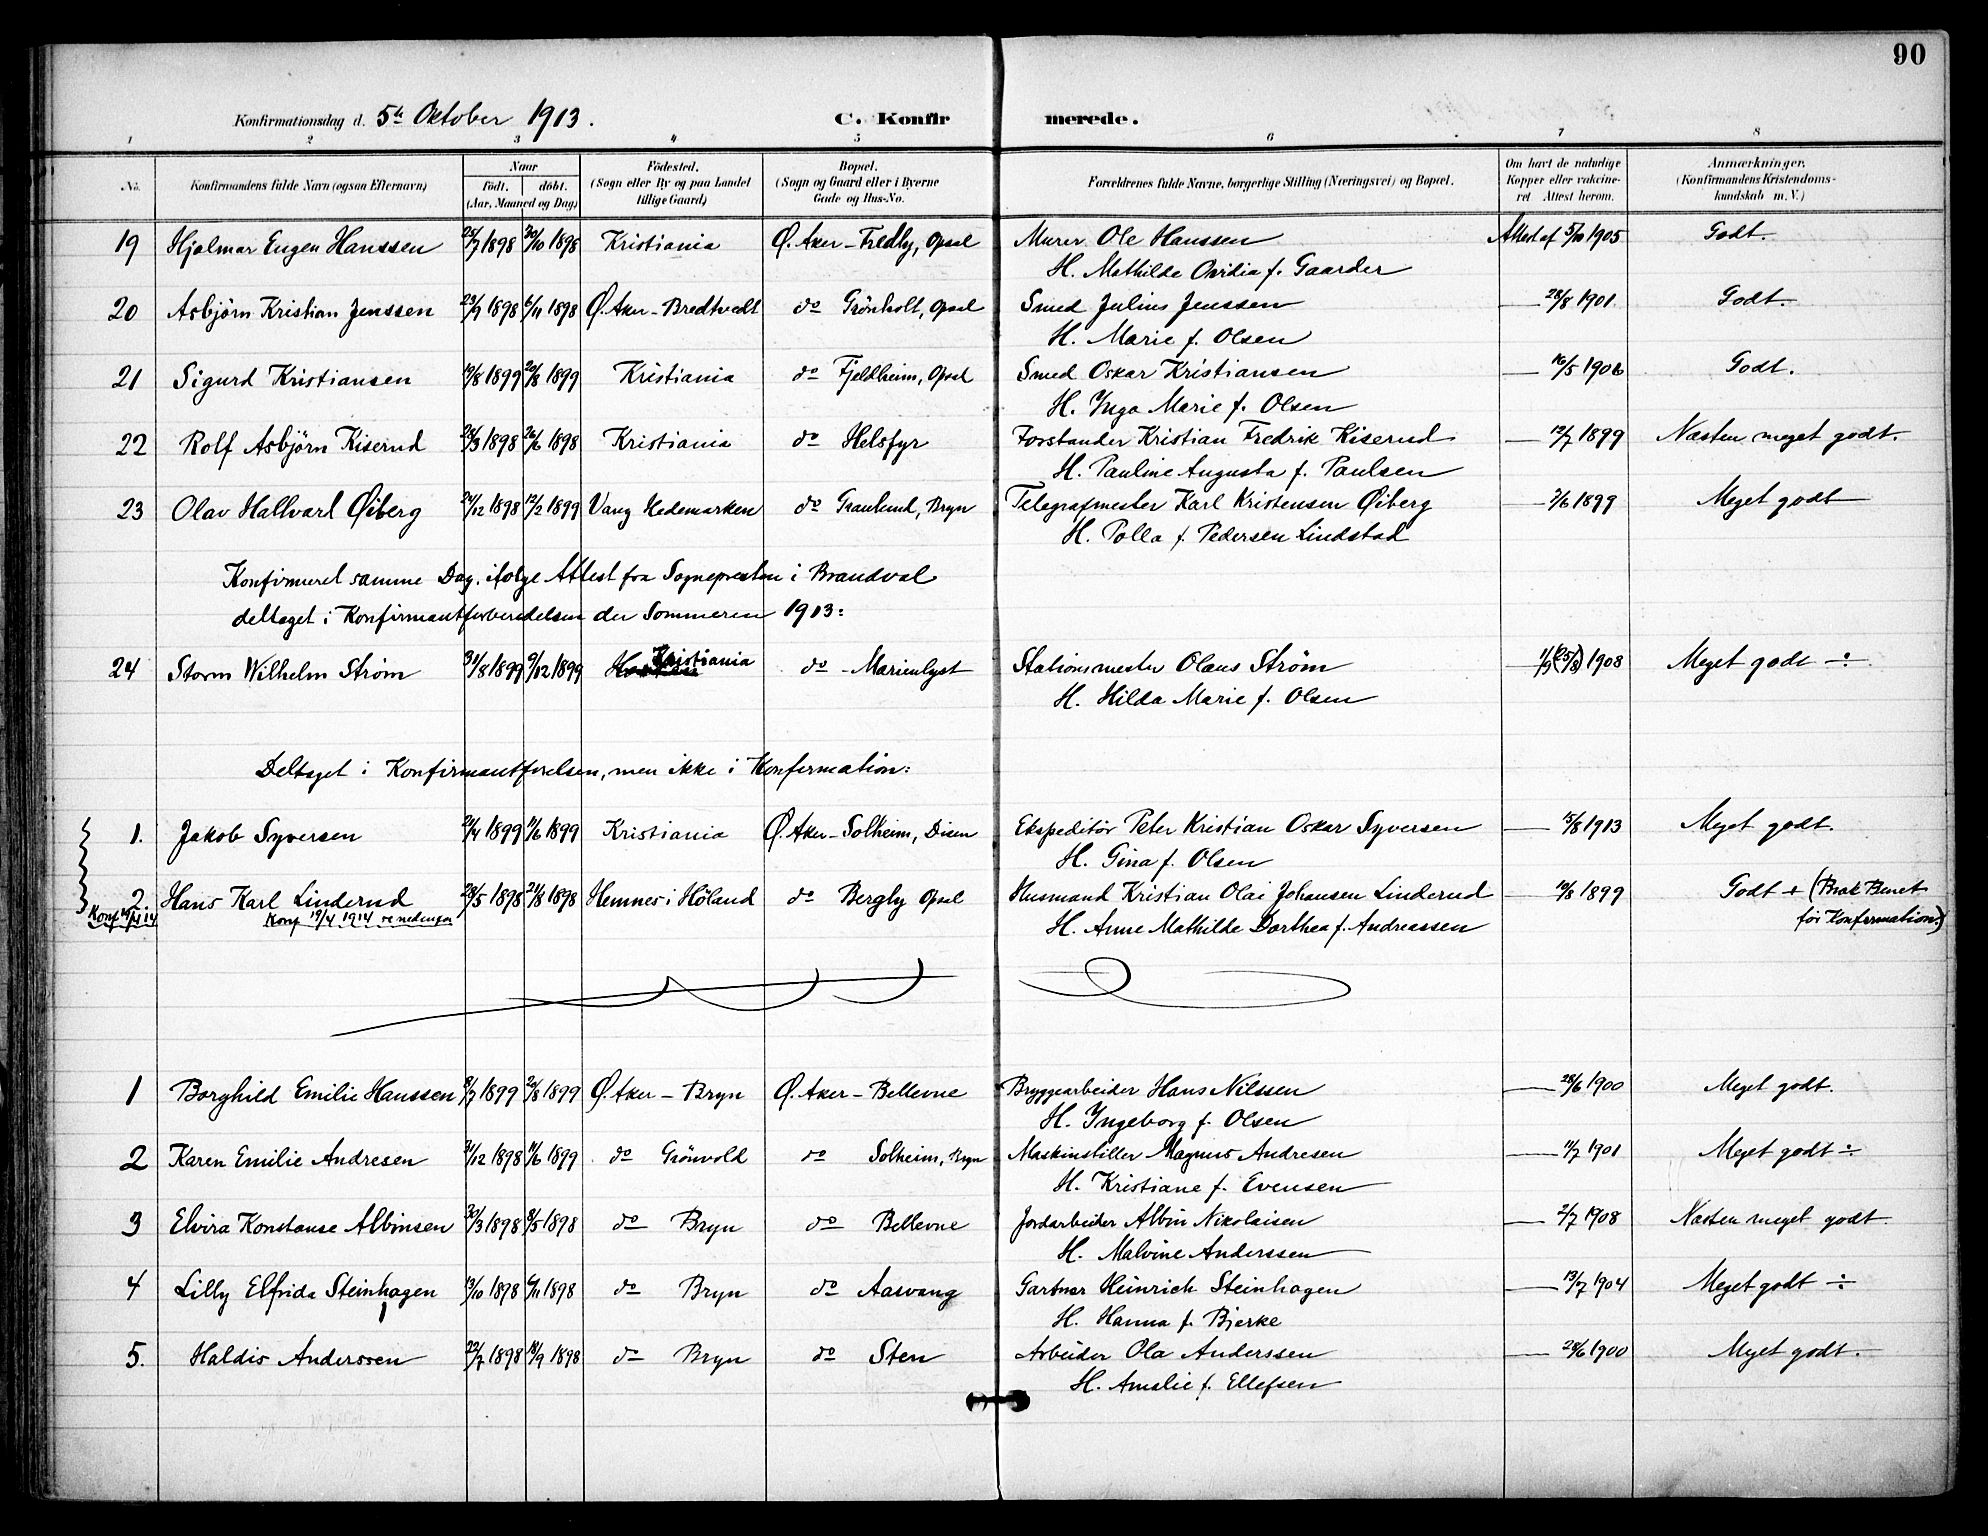 90
Konfirmationsdag d. 5te Oktober 1913. C. Konfirmerede.
1 2 3 4 5 6 7 8
No. Konfirmandens fulde Navn (ogsaa Efternavn) Naar födt. döbt. (Aar, Maaned og Dag) Födested. (Sogn eller By og paa Landet tillige Gaard) Bopæl. (Sogn og Gaard eller i Byerne Gade og Hus-No. Forældrenes fulde Navne, borgerlige Stilling (Næringsvei) og Bopæl. Om havt de naturlige Kopper eller vakcineret Attest herom. Anmærkninger. (Konfirmandens Kristendomskundskab m.V.)
19 Hjalmar Eugen Hanssen 1898 30/10 1898 Kristiania Ø. Aker - Fredly, Opsal Murer Ole Hanssen Attest af 5/10 1905 Godt.
H. Mathilde Ovidia f. Gaarder
20 Asbjörn Kristian Jenssen 23/9 1898 6/11 1898 Ø. Aker - Bredtvedt do Grönholt, Opsal Smed Julius Jenssen — 28/8 1901 Godt.
H. Marie f. Olsen
21 Sigurd Kristiansen 1899 20/8 1899 Kristiania do Fjeldheim, Opsal Smed Oskar Kristiansen — 16/5 1906 Godt.
H. Inga Marie f. Olsen
22 Rolf Asbjörn Kiserud 1898 26/6 1898 Kristiania do Helsfyr Forstander Kristian Fredrik Kiserud — 12/7 1899 Næsten meget godt.
H. Pauline Augusta f. Paulsen
23 Olav Hallvard Øiberg 1898 12/2 1899 Vang Hedemarken do Granlund, Bryn Telegrafmester Karl Kristensen Øiberg — 1899 Meget godt
H. Polla f. Pedersen Lindstad
Konfirmeret samme Dag, ifølge Attest fra Sognepresten i Brandval
deltaget i Konfirmantforberedelsen der Sommeren 1913:
24 Storm Wilhelm Strøm 31/8 1899 9/12 1899 Kristiania do - Marienlyst Stationsmester Olaus Strøm — 1908 Meget godt ÷
H. Hilda Marie f. Olsen
Deltaget i Konfirmantforelsen, men ikke i Konfirmation:
1. Jakob Syversen 21/4 1899 11/6 1899 Kristiania Ø. Aker - Solheim, Disen Ekspeditör Peter Kristian Oskar Syversen — 1913 Meget godt.
H. Gina f. Olsen
2. Hans Karl Linderud 28/5 1898 21/8 1898 Hemnes i Höland do Bergly Opsal Husmand Kristian Olai Johansen Linderud — 10/8 1899 Godt + (Brak Benet
Konf 19/4 14 Konf 19/4 1914 se nedenfor H. Anne Mathilde Dorthea f. Andreassen för Konfirmation.)
1 Borghild Emilie Hanssen 1899 20/8 1899 Ø. Aker - Bryn Ø. Aker - Bellevue Bryggearbeider Hans Nilssen — 28/6 1900 Meget godt.
H. Ingeborg f. Olsen
2 Karen Emilie Andresen 31/12 1898 11/6 1899 do Grönvold do Solheim, Bryn Maskinstiller Magnus Andresen — 11/7 1901 Meget godt ÷
H. Kristiane f. Evensen
3 Elvira Konstanse Albinsen 30/3 1898 8/5 1898 do Bryn do Bellevue Jordarbeider Albin Nikolaisen — 2/7 1908 Næsten meget godt
H. Malvine Anderssen
4 Lilly Elfrida Steinhagen 13/10 1898 1898 do Bryn do Aasvang Gartner Heinrich Steinhagen — 13/7 1904 Meget godt ÷
H. Hanna f. Bjerke
5. Haldis Anderssen 22/7 1898 18/9 1898 do Bryn do Sten Arbeider Ola Anderssen — 28/6 1900 Meget godt.
H. Amalie f. Ellefsen